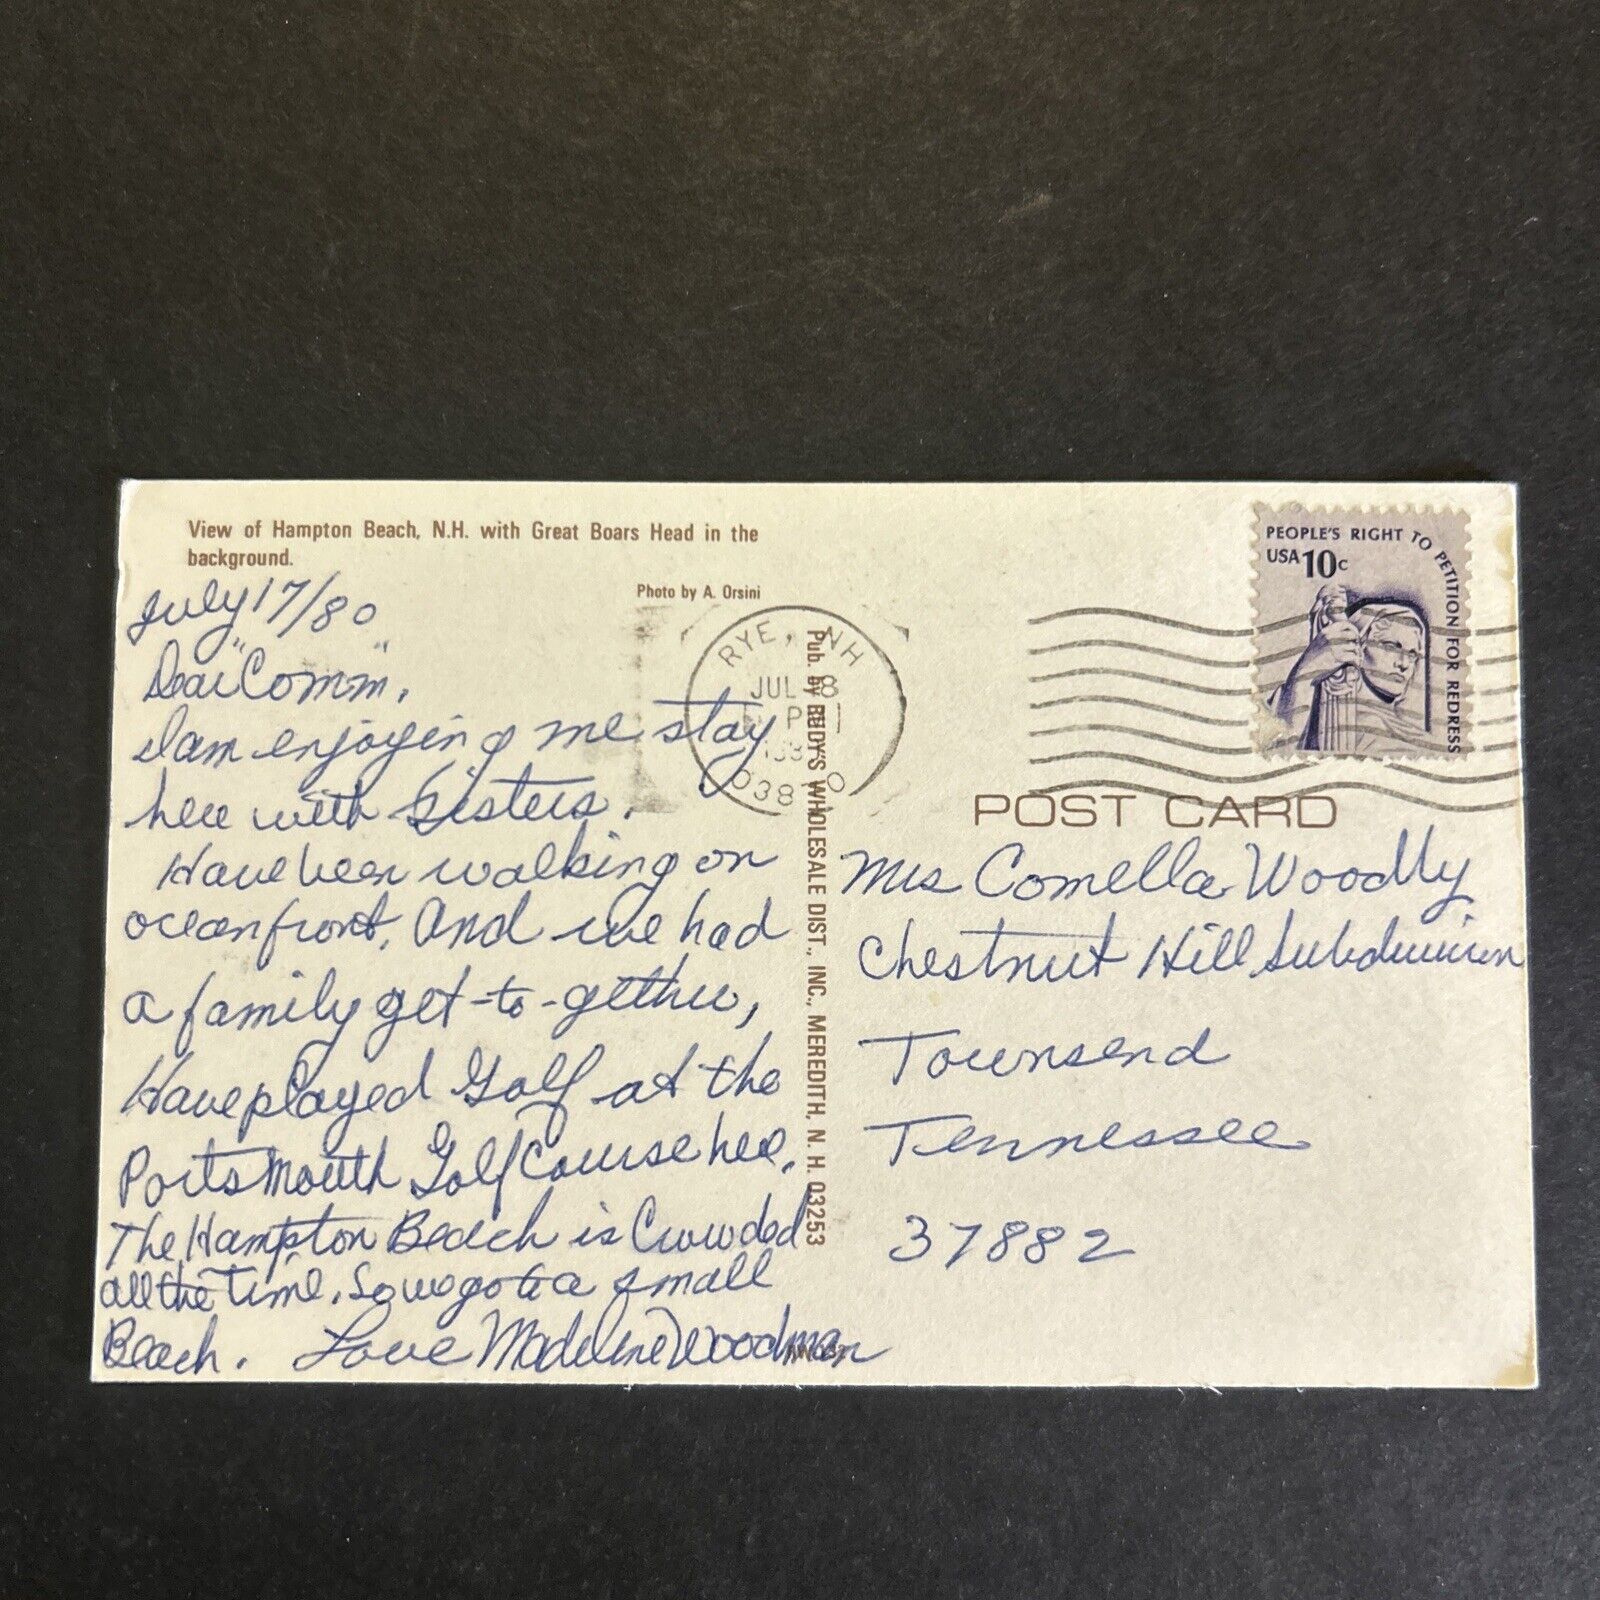 View of Hampton Beach, N.H. with Great Boars Head in the
background.
Photo by A. Orsini
July 17/80
Dear "Comm",
I am enjoying me stay
here with Sisters.
Have been walking on
ocean front. And we had
a family get-to-gether,
Have played Golf at the
Portsmouth Golf Course here.
The Hampton Beach is Crowded
all the Time. So we go to a small
Beach. Love Madeline Woodman
RYE, NH
JUL 18
PM
1980
038
Pub. by RUDY'S WHOLESALE DIST., INC., MEREDITH, N. H. 03253
PEOPLE'S RIGHT TO PETITION FOR REDRESS
USA 10c
POST CARD
Mrs Comella Woodly
Chestnut Hill Subdivision
Townsend
Tennessee
37882